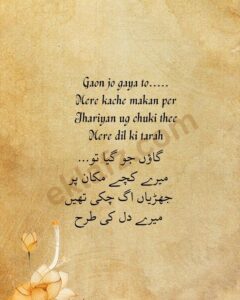 Gaon jo gaya to.....
Mere kache makan per
Jhariyan ug chuki thee
Mere dil ki tarah
گاؤں جو گیا تو...
میرے کچے مکان پر
جھڑیاں اگ چکی تھیں
میرے دل کی طرح